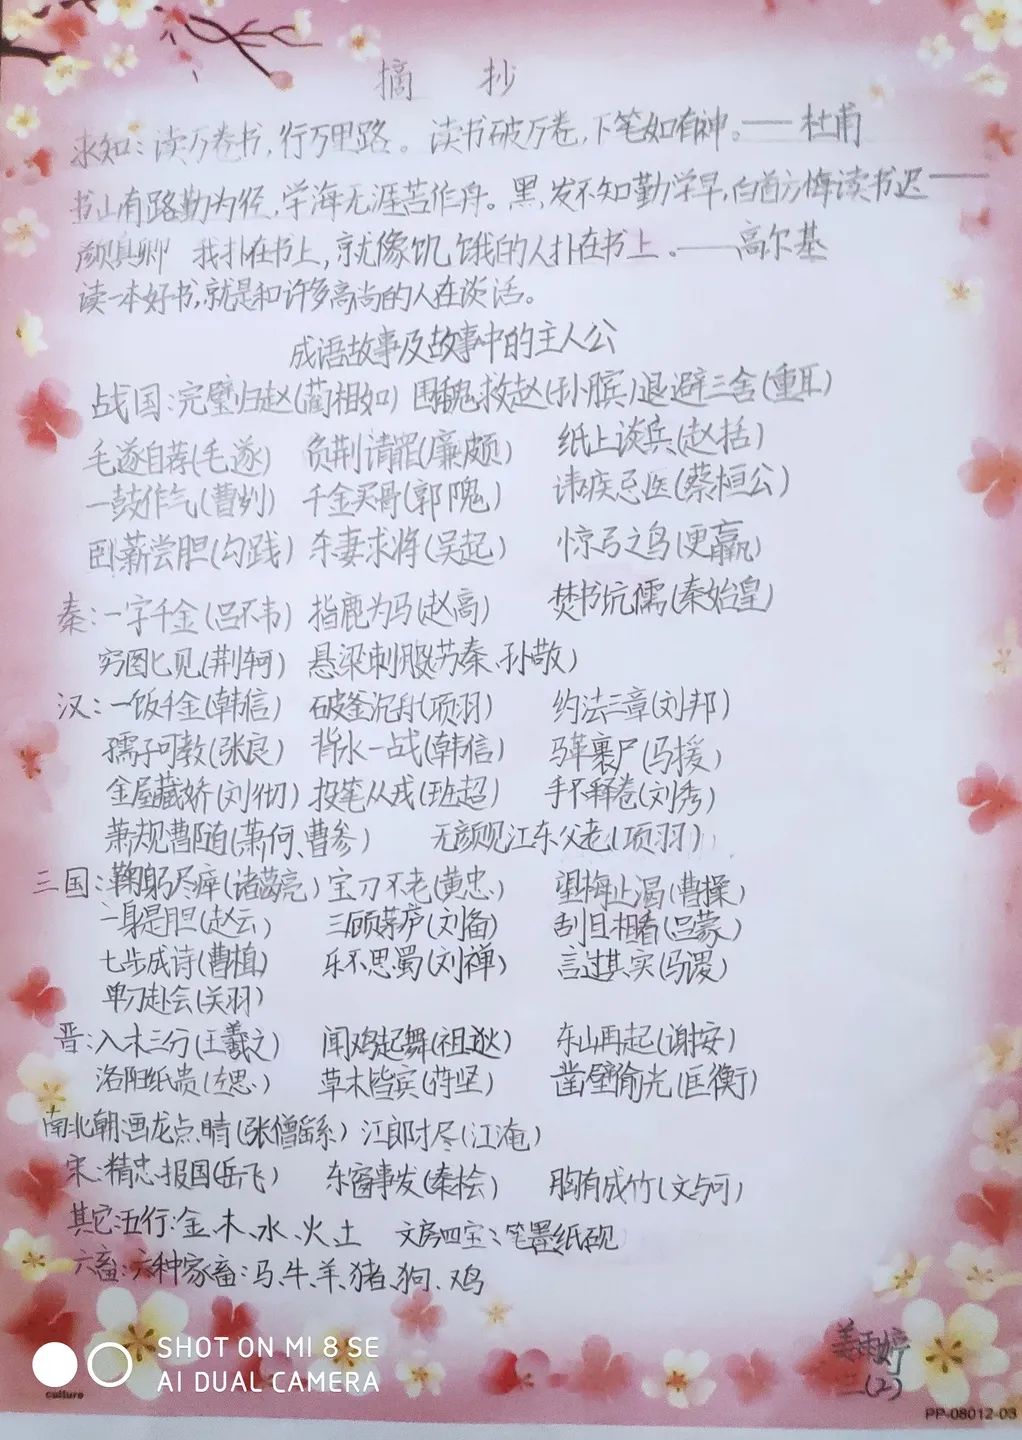 摘 抄
求知：读万卷书，行万里路。读书破万卷，下笔如有神。——杜甫
书山有路勤为径，学海无涯苦作舟。黑发不知勤学早，白首方悔读书迟——
颜真卿 我扑在书上，就像饥饿的人扑在书上。——高尔基
读一本好书，就是和许多高尚的人在谈话。
成语故事及故事中的主人公
战国：完璧归赵(蔺相如) 围魏救赵(孙膑) 退避三舍(重耳)
毛遂自荐(毛遂) 负荆请罪(廉颇) 纸上谈兵(赵括)
一鼓作气(曹刿) 千金买骨(郭隗) 讳疾忌医(蔡桓公)
卧薪尝胆(勾践) 杀妻求将(吴起) 惊弓之鸟(更羸)
秦：一字千金(吕不韦) 指鹿为马(赵高) 焚书坑儒(秦始皇)
穷图匕见(荆轲) 悬梁刺股(苏秦、孙敬)
汉：一饭千金(韩信) 破釜沉舟(项羽) 约法三章(刘邦)
孺子可教(张良) 背水一战(韩信) 马革裹尸(马援)
金屋藏娇(刘彻) 投笔从戎(班超) 手不释卷(刘秀)
萧规曹随(萧何、曹参) 无颜见江东父老(项羽)
三国：鞠躬尽瘁(诸葛亮) 宝刀不老(黄忠) 望梅止渴(曹操)
一身是胆(赵云) 三顾茅庐(刘备) 刮目相看(吕蒙)
七步成诗(曹植) 乐不思蜀(刘禅) 言过其实(马谡)
单刀赴会(关羽)
晋：入木三分(王羲之) 闻鸡起舞(祖逖) 东山再起(谢安)
洛阳纸贵(左思) 草木皆兵(苻坚) 凿壁偷光(匡衡)
南北朝：画龙点睛(张僧繇) 江郎才尽(江淹)
宋：精忠报国(岳飞) 东窗事发(秦桧) 胸有成竹(文与可)
其它：五行：金、木、水、火、土 文房四宝：笔墨纸砚
六畜：六种家畜：马、牛、羊、猪、狗、鸡
姜雨婷
二(2)
SHOT ON MI 8 SE
AI DUAL CAMERA
culture
PP-08012-03